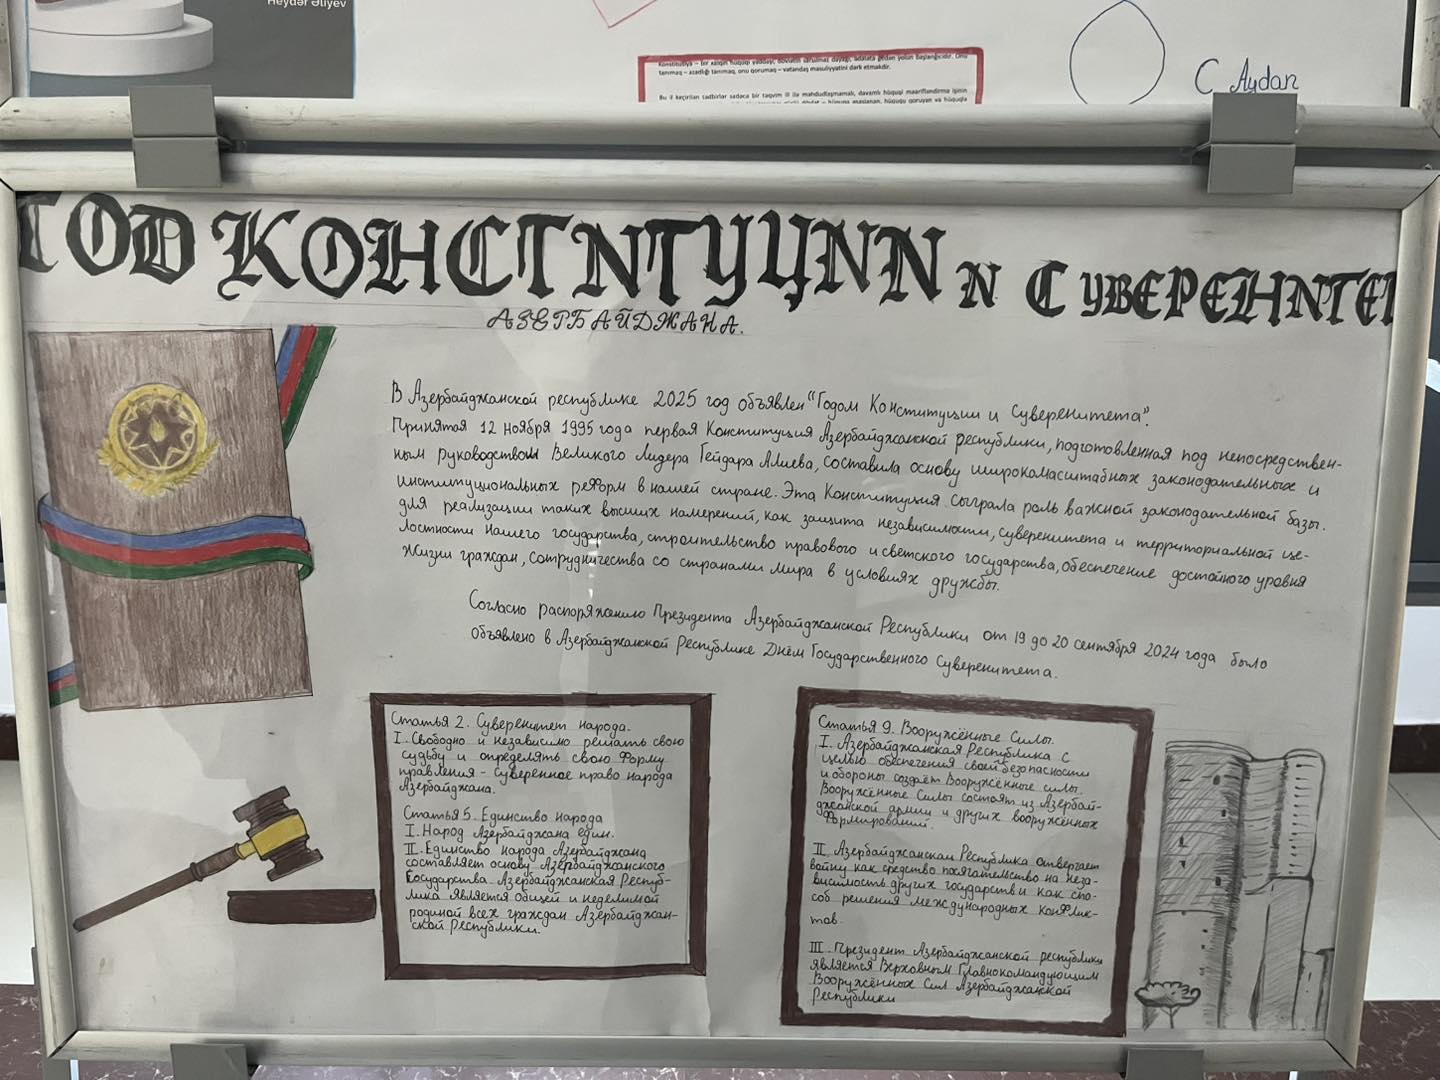 Heydər Əliyev
Konstitusiya – hər xalqın hüquqi yaddaşı, dövlətin sarsılmaz dayağı, ədalətə gedən yolun başlanğıcıdır. Onu
tanımaq – azadlığı tanımaq, onu qorumaq – vətəndaş məsuliyyətini dərk etməkdir.
Bu il keçirilən tədbirlər sadəcə bir təqvim ili ilə məhdudlaşmamalı, davamlı hüquqi maarifləndirmə işinin
C Aydan
ГОД КОНСТИТУЦИИ И СУВЕРЕНИТЕТ
АЗЕРБАЙДЖАНА.
В Азербайджанской республике 2025 год объявлен "Годом Конституции и Суверенитета".
Принятая 12 ноября 1995 года первая Конституция Азербайджанской республики, подготовленная под непосредствен-
ным руководством Великого Лидера Гейдара Алиева, составила основу широкомасштабных законодательных и
институциональных реформ в нашей стране. Эта Конституция сыграла роль важной законодательной базы.
для реализации таких высших намерений, как защита независимости, суверенитета и территориальной це-
лостности нашего государства, строительство правового и светского государства, обеспечение достойного уровня
жизни граждан, сотрудничества со странами мира в условиях дружбы.
Согласно распоряжению Президента Азербайджанской Республики от 19 до 20 сентября 2024 года было
объявлено в Азербайджанской Республике Днём Государственного Суверенитета.
Статья 2. Суверенитет народа.
I. Свободно и независимо решать свою
судьбу и определять свою форму
правления - суверенное право народа
Азербайджана.
Статья 5. Единство народа
I. Народ Азербайджана един.
II. Единство народа Азербайджана
составляет основу Азербайджанского
Государства. Азербайджанская Респуб-
лика является общей и неделимой
родиной всех граждан Азербайджан-
ской Республики.
Статья 9. Вооружённые Силы.
I. Азербайджанская Республика с
целью обеспечения своей безопасности
и обороны создаёт Вооружённые силы.
Вооружённые Силы состоят из Азербай-
джанской армии и других вооружённых
формирований.
II. Азербайджанская Республика отвергает
войну как средство посягательство на неза-
висимость других государств и как спо-
соб решения международных конфлик-
тов.
III. Президент Азербайджанской республики
является Верховным Главнокомандующим
Вооружённых Сил Азербайджанской
Республики